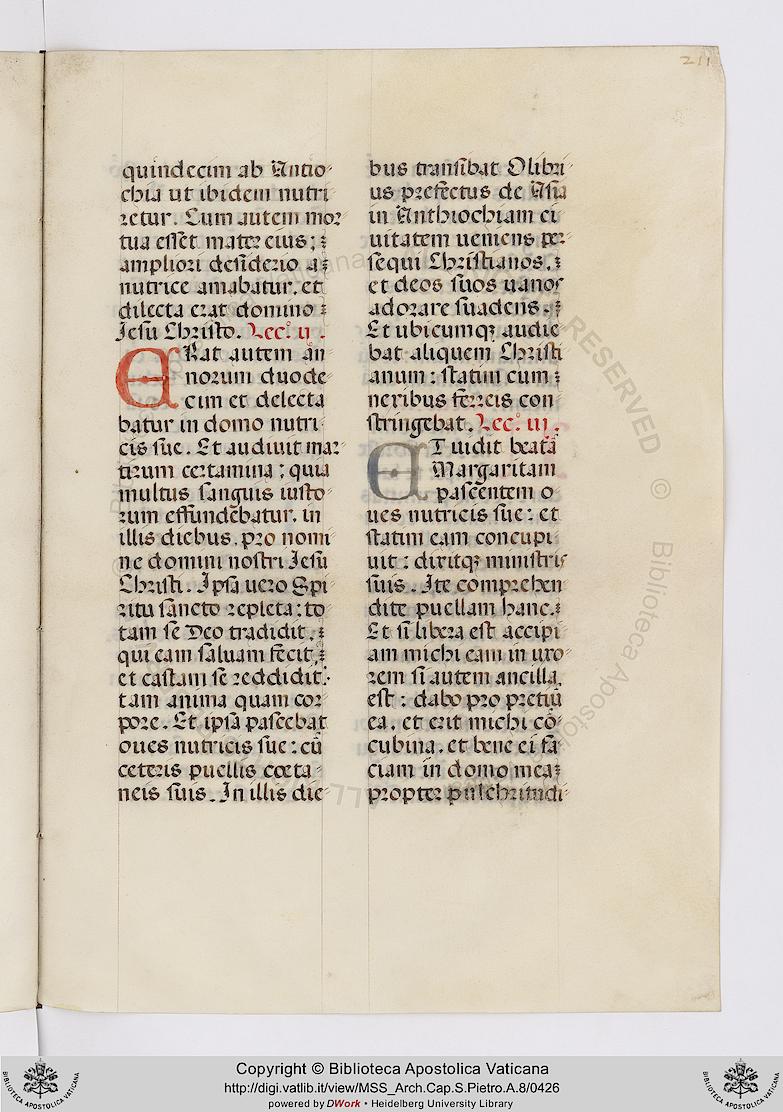 211
quindecim ab Antio-
chia ut ibidem nutri
retur. Cum autem mor
tua esset mater eius:
ampliori desiderio a
nutrice amabatur. et
dilecta erat domino
Jesu Christo. Lec. ii.
ERat autem an
norum duode-
cim et delecta
batur in domo nutri-
cis sue. Et audiuit mar
tirum certamina: quia
multus sanguis iusto-
rum effundebatur. in
illis diebus. pro nomi
ne domini nostri Jesu
Christi. Ipsa uero Spi
ritu sancto repleta: to
tam se Deo tradidit.
qui eam saluam fecit.
et castam se reddidit.
tam anima quam cor
pore. Et ipsa pascebat
oues nutricis sue: cū
ceteris puellis coeta-
neis suis. In illis die-
bus transibat Olibri-
us prefectus de Asia
in Anthiochiam ci-
uitatem ueniens per-
sequi Christianos.
et deos suos uanos
adorare suadens.
Et ubicumqꝫ audie
bat aliquem Christi
anum: statim cum
neribus ferreis con
stringebat. Lec. iii.
ET uidit beatā
Margaritam
pascentem o
ues nutricis sue: et
statim eam concupi
uit: dixitqꝫ ministris
suis. Ite comprehen
dite puellam hanc.
Et si libera est accipi-
am michi eam in uxo-
rem si autem ancilla.
est: dabo pro pretiū
ea. et erit michi cō-
cubina. et bene ei fa-
ciam in domo mea
propter pulchritudi-
RESERVED © Biblioteca Apostolica
Copyright © Biblioteca Apostolica Vaticana
http://digi.vatlib.it/view/MSS_Arch.Cap.S.Pietro.A.8/0426
powered by DWork • Heidelberg University Library
BIBLIOTECA APOSTOLICA VATICANA
BIBLIOTECA APOSTOLICA VATICANA